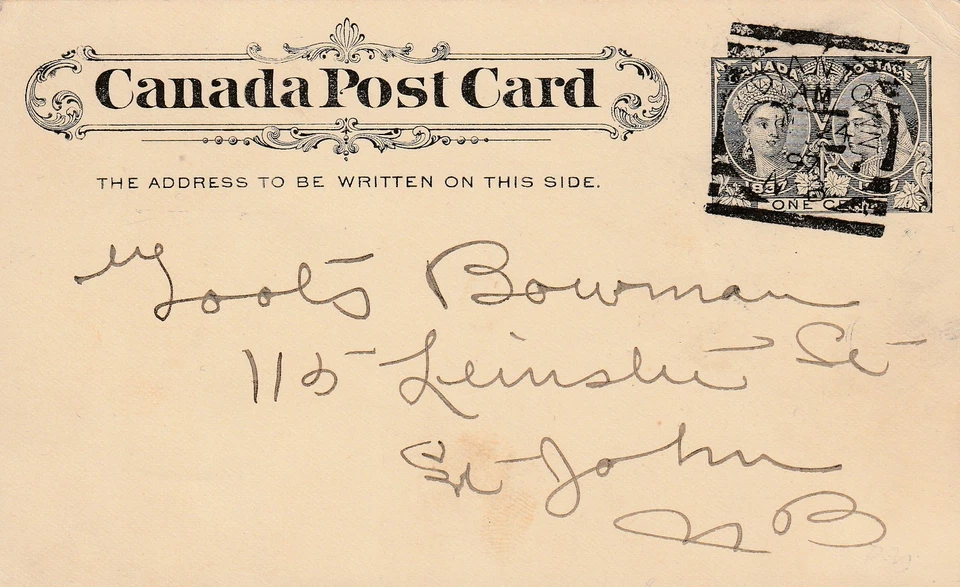 Canada Post Card
CANADA POSTAGE
1837 1897
ONE CENT
THE ADDRESS TO BE WRITTEN ON THIS SIDE.
Toots Bowman
115 Leinster St
St John
NB